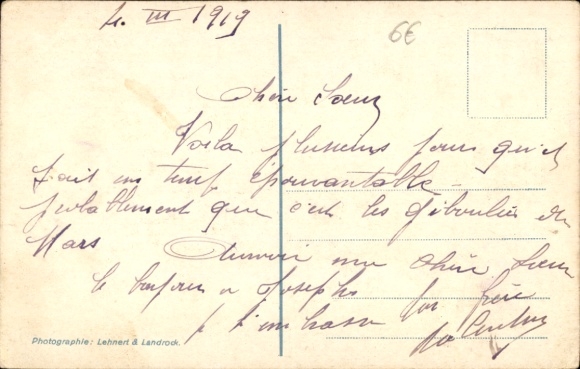 4. III 1919
6€
Chère Soeur
Voila plusieurs jours qu'il
fait un temp épouvantable
probablement que c'est les Giboulées de
Mars Aurevoir ma chère Soeur
le bonjour a Josephs
je t'embrasse ton frère
Photographie: Lehnert & Landrock.